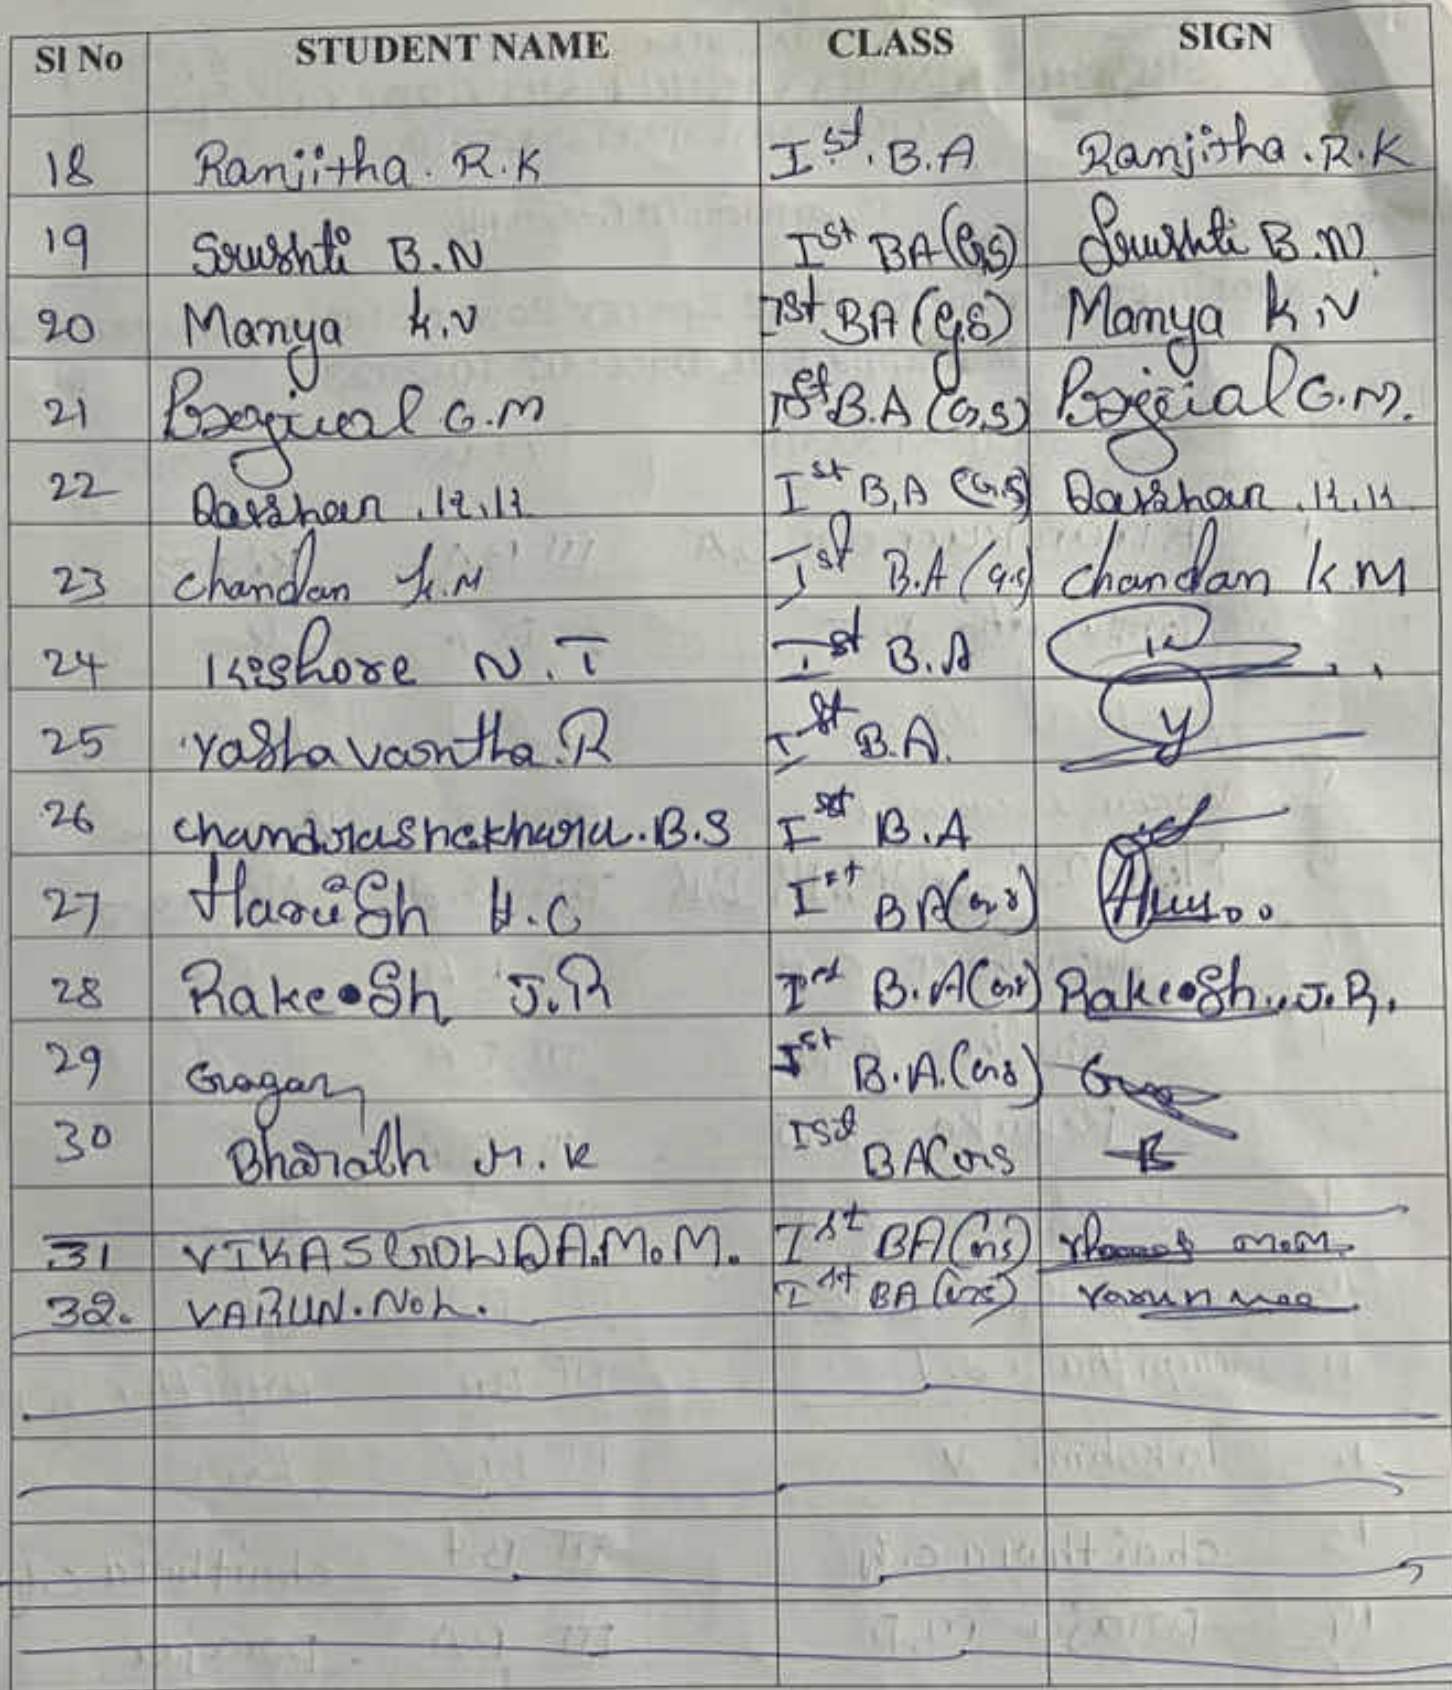 Sl No STUDENT NAME CLASS SIGN
18 Ranjitha. R.K Ist. B.A Ranjitha. R.K
19 Srushti B.N Ist BA(G.S) Srushti B.N
20 Manya K.V Ist BA (G.S) Manya K.V
21 G.M Ist B.A (G.S) G.M.
22 Darshan .K.K Ist B.A (G.S) Darshan .K.K
23 Chandan K.M Ist B.A (G.S) Chandan K M
24 Kishore N.T Ist B.A K
25 Yashavantha.R Ist B.A. Y
26 Chandrashekhara.B.S Ist B.A
27 Harish H.C Ist BA(G.S)
28 Rakesh J.R Ist B.A(G.S) Rakesh..J.R.
29 Gagan Ist B.A.(G.S)
30 Bharath M.K Ist BA(G.S B
31 VIKASGOWDA.M.M. Ist BA(G.S) M.M.
32. VARUN.N.L. Ist BA(G.S) Varun